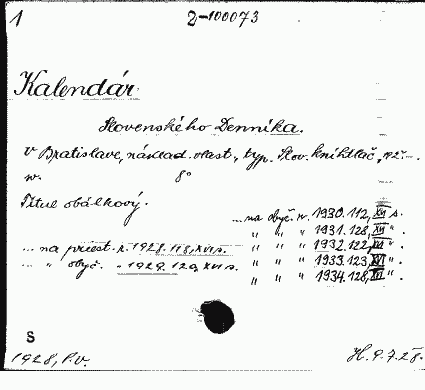 1 2-100073
Kalendár
Slovenského Denníka.
V Bratislave, náklad. vlast., typ. Slov. kníhtlač,
8°
Titul obálkový.
...na obyč. r. 1930.112, XII s.
" " " 1931.128, XII " .
... na priest. r. 1928.118, XVI s. " " " 1932.122, XII " .
... " obyč. " 1929.120, XVI s. " " " 1933.123, XVI " .
" " " 1934.128, XVI " .
S
1928, P.v. H.9.7.28.